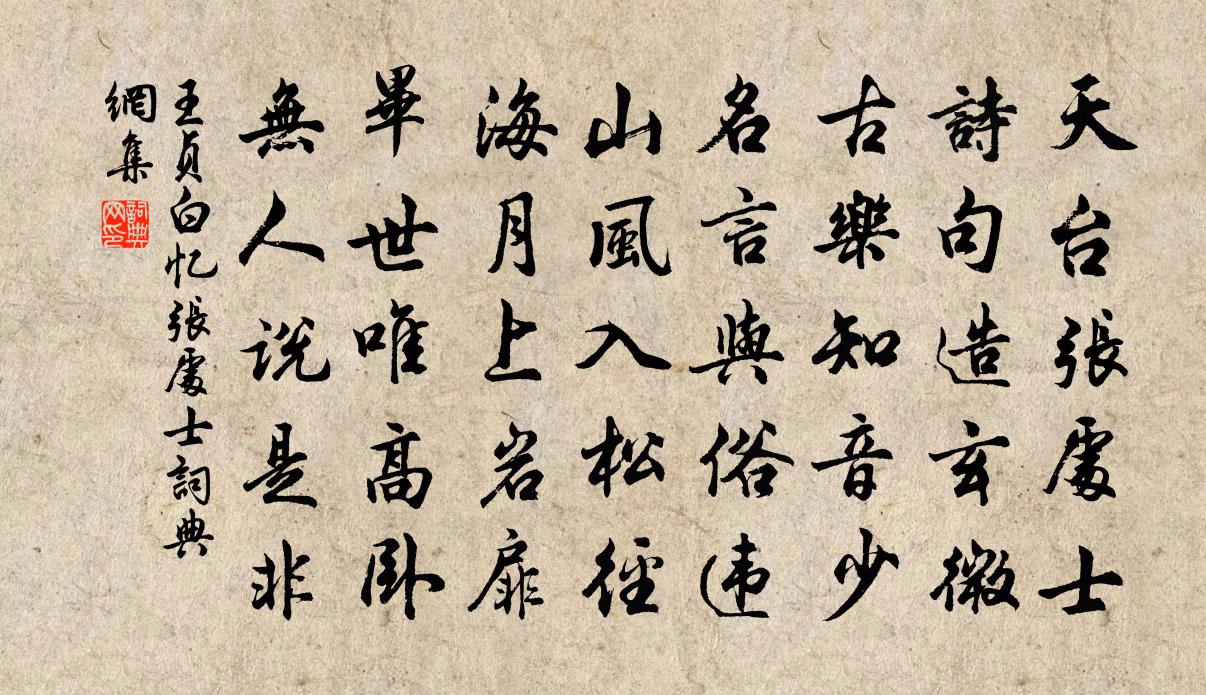 天台張處士
詩句造玄微
古樂知音少
名言與俗违
山風入松徑
海月上岩扉
畢世唯高卧
無人说是非
王貞白忆張處士詞典
網集
詞典
网印